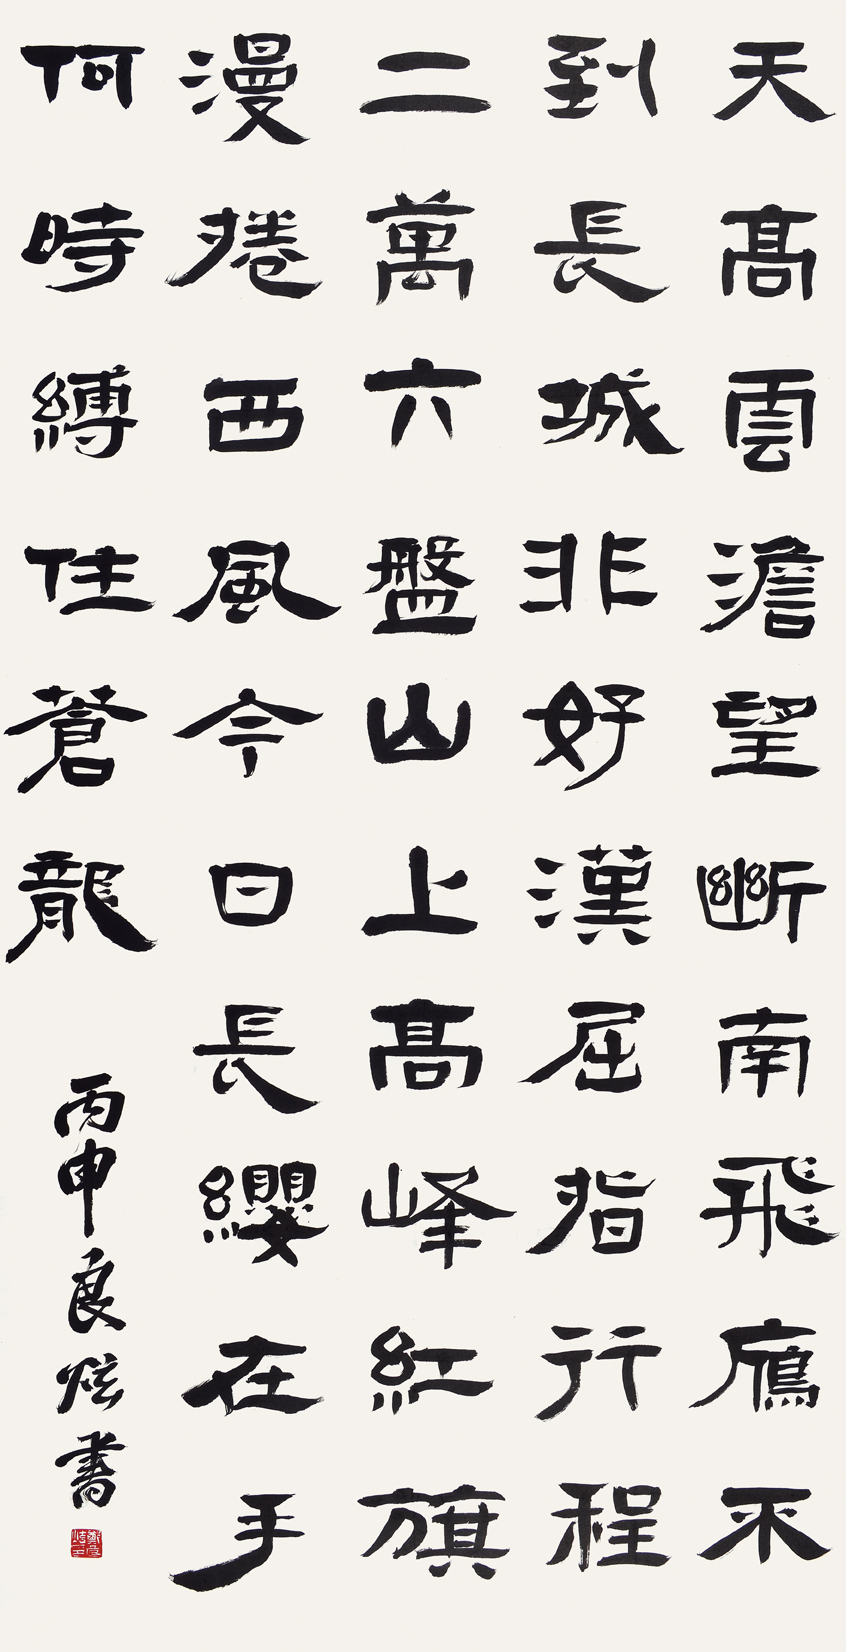 天高雲澹望斷南飛鴈不
到長城非好漢屈指行程
二萬六盤山上高峰紅旗
漫捲西風今日長纓在手
何時縛住蒼龍
丙申良炫書